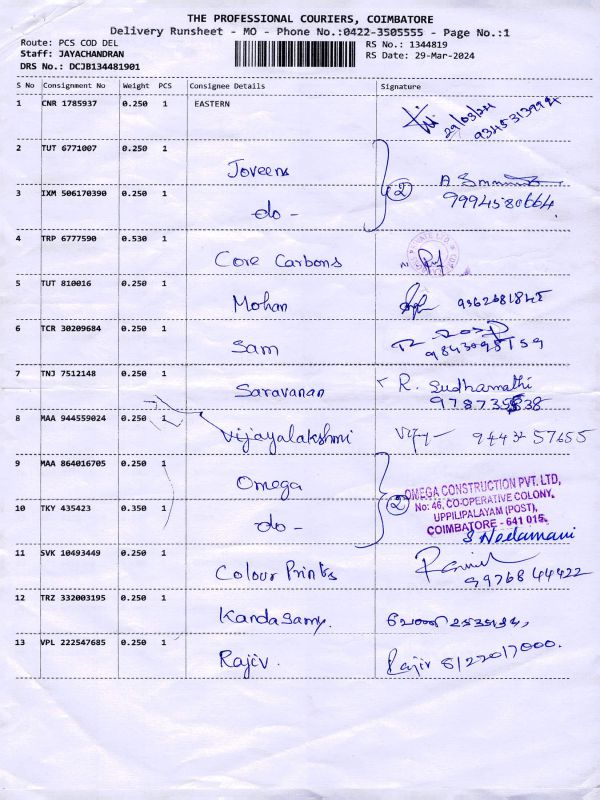 THE PROFESSIONAL COURIERS, COIMBATORE
Delivery Runsheet - MO - Phone No.:0422-3505555 - Page No.:1
Route: PCS COD DEL
Staff: JAYACHANDRAN
DRS No.: DCJB134481901
RS No.: 1344819
RS Date: 29-Mar-2024
S No Consignment No Weight PCS Consignee Details Signature
1 CNR 1785937 0.250 1 EASTERN 29/03/24
2 TUT 6771007 0.250 1 Joveens
3 IXM 506170390 0.250 1 do - 2 9994580664.
4 TRP 6777590 0.530 1 Core Carbons
5 TUT 810016 0.250 1 Mohan
6 TCR 30209684 0.250 1 Sam
7 TNJ 7512148 0.250 1 Saravanan R. Sudhamathi
8 MAA 944559024 0.250 1 Vijayalakshmi Vijay- 94432 57655
9 MAA 864016705 0.250 1 Omega
10 TKY 435423 0.350 1 do - 2
OMEGA CONSTRUCTION PVT. LTD,
No: 46, CO-OPERATIVE COLONY,
UPPILIPALAYAM (POST),
COIMBATORE - 641 015.
11 SVK 10493449 0.250 1 Colour Prints 9976844422
12 TRZ 332003195 0.250 1 Kandasamy.
13 VPL 222547685 0.250 1 Rajiv. Rajiv 8122017000.